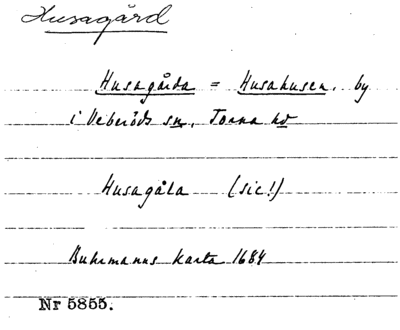 Husagård
Husagårda = Husahusen, by
i Veberöds sn, Torna hd
Husagåla (sic!)
Buhrmanns karta 1684
Nr 5855.